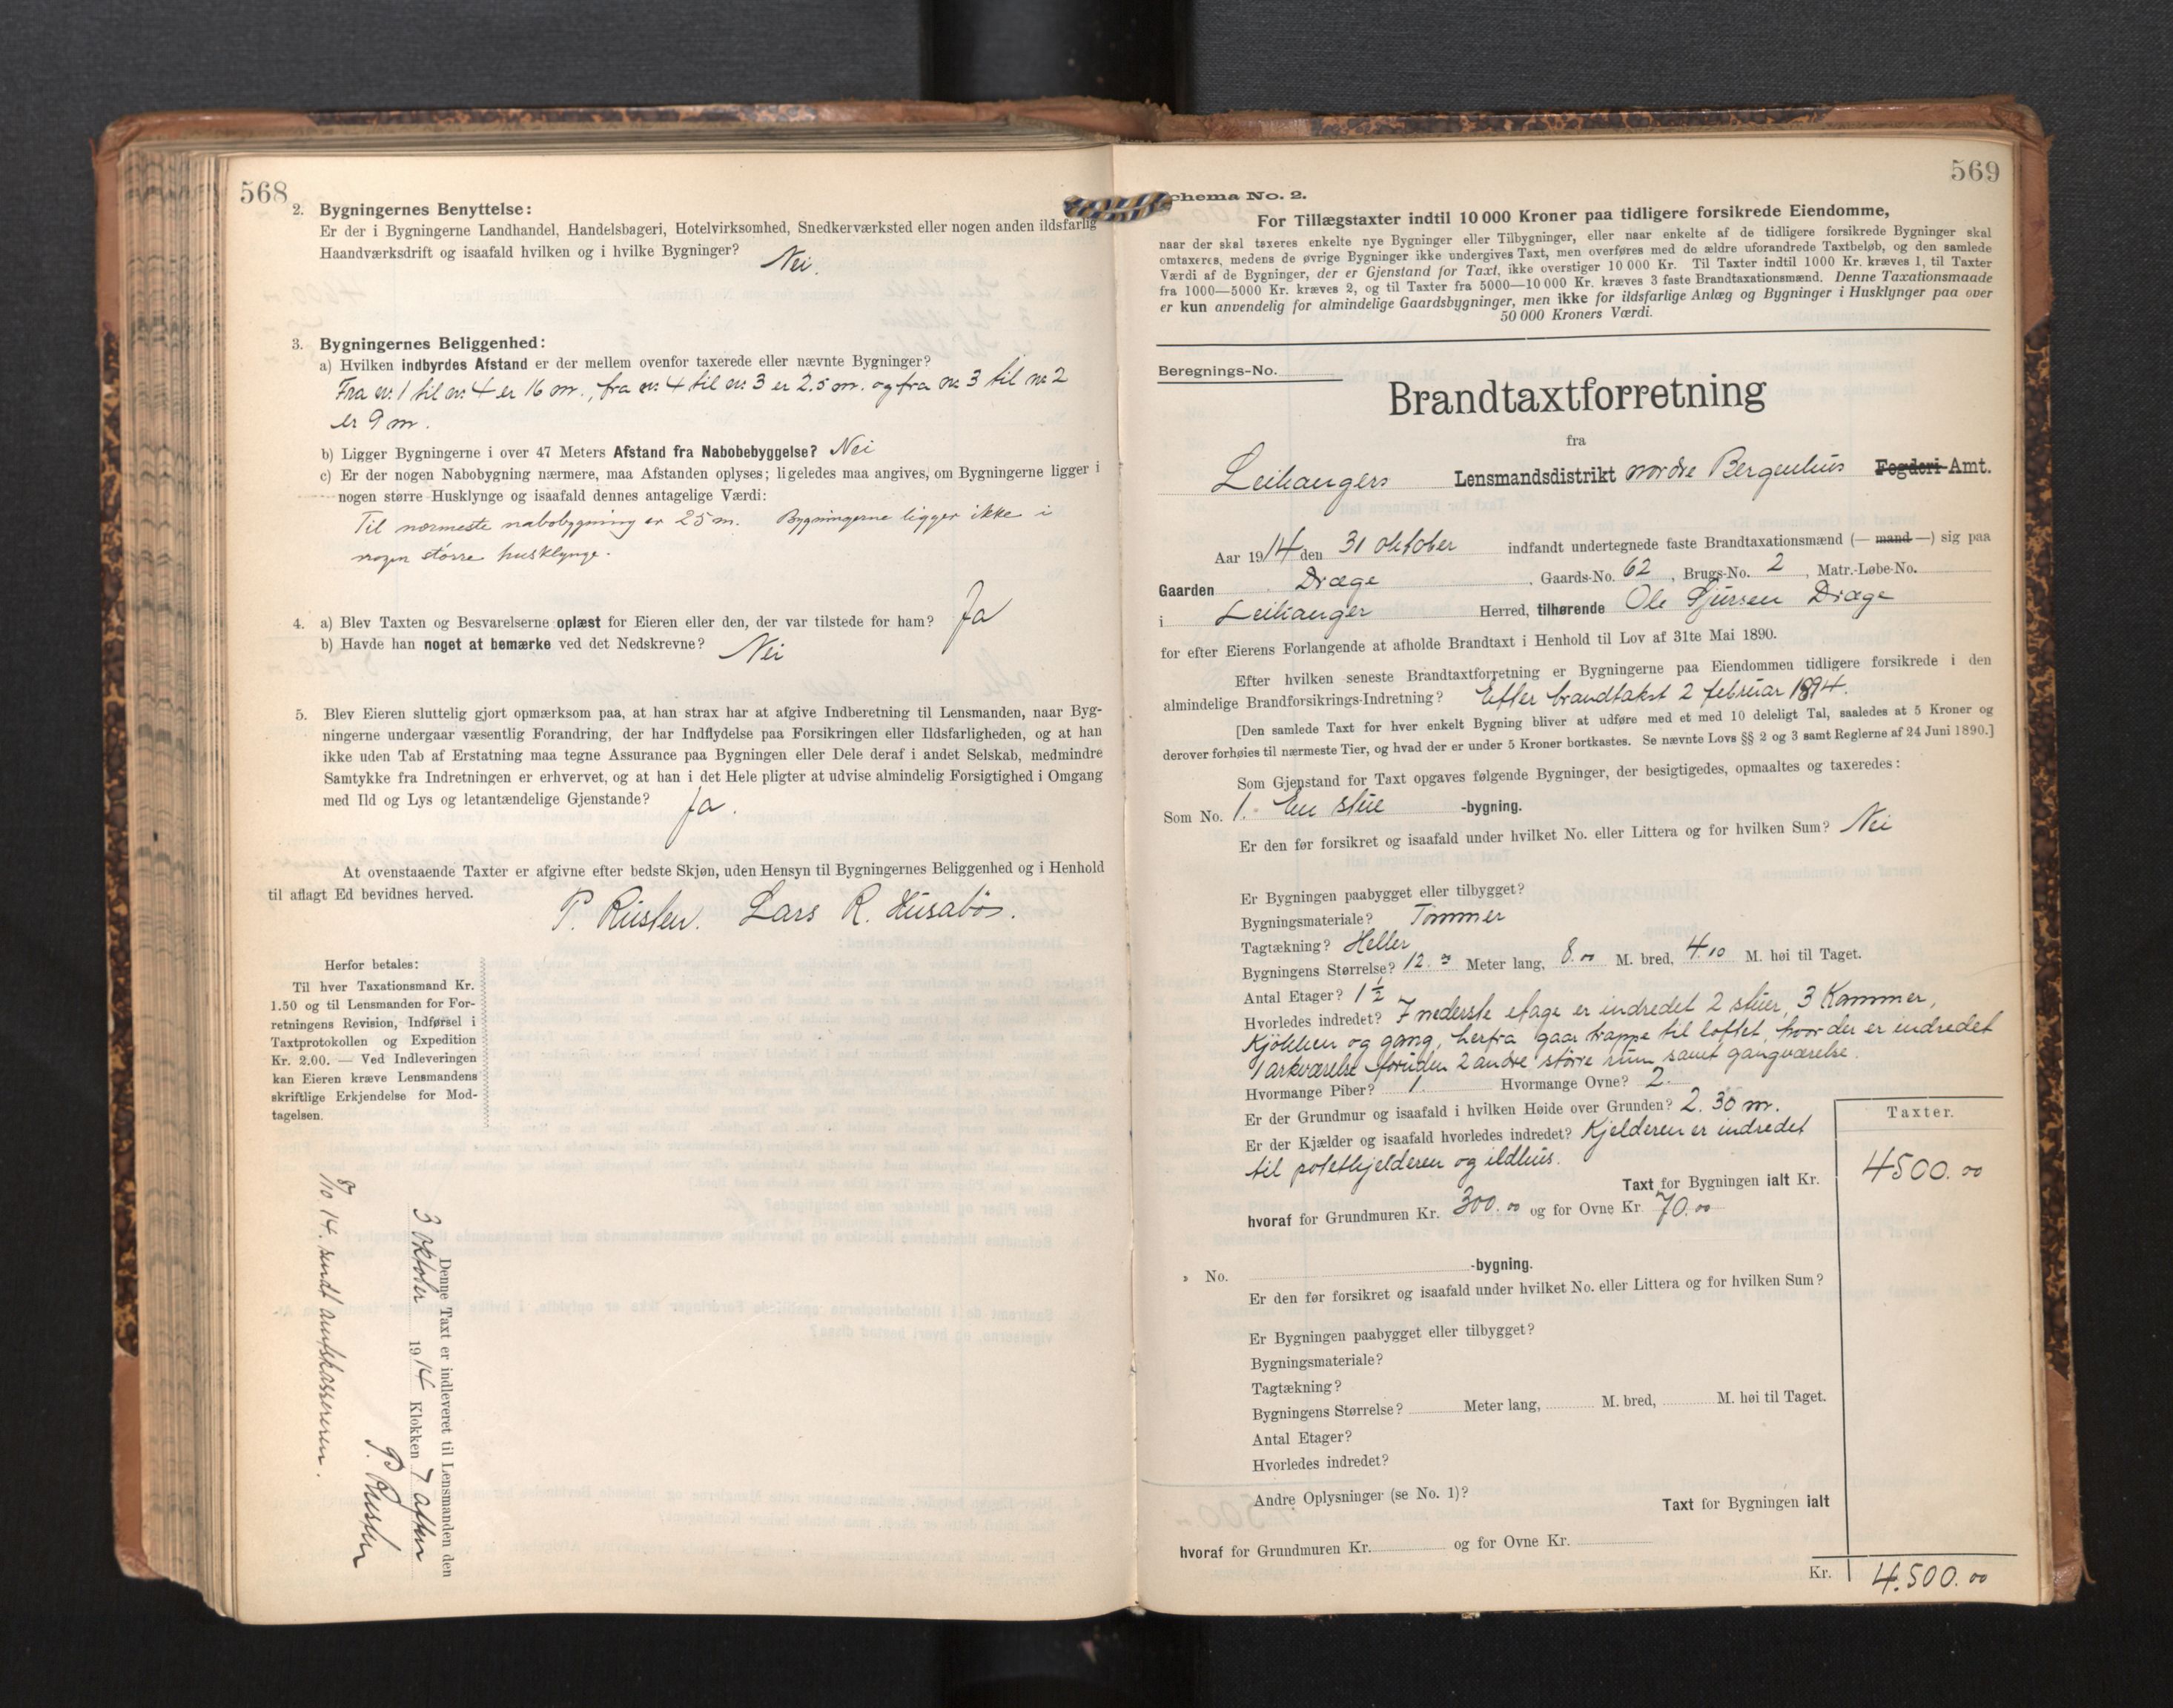 568
2. Bygningernes Benyttelse:
Er der i Bygningerne Landhandel, Handelsbageri, Hotelvirksomhed, Snedkerværksted eller nogen anden ildsfarlig
Haandværksdrift og isaafald hvilken og i hvilke Bygninger? Nei.
3. Bygningernes Beliggenhed:
a) Hvilken indbyrdes Afstand er der mellem ovenfor taxerede eller nævnte Bygninger?
Fra nr. 1 til nr. 4 er 16 m., fra nr. 4 til nr. 3 er 2.5 m. og fra nr. 3 til nr. 2
er 9 m.
b) Ligger Bygningerne i over 47 Meters Afstand fra Nabobebyggelse? Nei
c) Er der nogen Nabobygning nærmere, maa Afstanden oplyses; ligeledes maa angives, om Bygningerne ligger i
nogen større Husklynge og isaafald dennes antagelige Værdi:
Til nærmeste nabobygning er 25 m. Bygningerne ligger ikke i
nogen større husklynge.
4. a) Blev Taxten og Besvarelserne oplæst for Eieren eller den, der var tilstede for ham? Ja
b) Havde han noget at bemærke ved det Nedskrevne? Nei
5. Blev Eieren sluttelig gjort opmærksom paa, at han strax har at afgive Indberetning til Lensmanden, naar Byg-
ningerne undergaar væsentlig Forandring, der har Indflydelse paa Forsikringen eller Ildsfarligheden, og at han
ikke uden Tab af Erstatning maa tegne Assurance paa Bygningen eller Dele deraf i andet Selskab, medmindre
Samtykke fra Indretningen er erhvervet, og at han i det Hele pligter at udvise almindelig Forsigtighed i Omgang
med Ild og Lys og letantændelige Gjenstande? Ja.
At ovenstaaende Taxter er afgivne efter bedste Skjøn, uden Hensyn til Bygningernes Beliggenhed og i Henhold
til aflagt Ed bevidnes herved.
P. Rusten. Lars R. Husabø.
Herfor betales:
Til hver Taxationsmand Kr.
1.50 og til Lensmanden for For-
retningens Revision, Indførsel i
Taxtprotokollen og Expedition
Kr. 2.00. — Ved Indleveringen
kan Eieren kræve Lensmandens
skriftlige Erkjendelse for Mod-
tagelsen.
Denne Taxt er indleveret til Lensmanden den
3 oktober 1914 Klokken 7 aften
P. Rusten
8/10 14. sendt amtskassereren.
569
chema No. 2.
For Tillægstaxter indtil 10 000 Kroner paa tidligere forsikrede Eiendomme,
naar der skal taxeres enkelte nye Bygninger eller Tilbygninger, eller naar enkelte af de tidligere forsikrede Bygninger skal
omtaxeres, medens de øvrige Bygninger ikke undergives Taxt, men overføres med de ældre uforandrede Taxtbeløb, og den samlede
Værdi af de Bygninger, der er Gjenstand for Taxt, ikke overstiger 10 000 Kr. Til Taxter indtil 1000 Kr. kræves 1, til Taxter
fra 1000—5000 Kr. kræves 2, og til Taxter fra 5000—10 000 Kr. kræves 3 faste Brandtaxationsmænd. Denne Taxationsmaade
er kun anvendelig for almindelige Gaardsbygninger, men ikke for ildsfarlige Anlæg og Bygninger i Husklynger paa over
50 000 Kroners Værdi.
Beregnings-No.
Brandtaxtforretning
fra
Leikangers Lensmandsdistrikt nordre Bergenhus Fogderi-Amt.
Aar 1914 den 31 oktober indfandt undertegnede faste Brandtaxationsmænd (— mand —) sig paa
Gaarden Dræge, Gaards-No. 62, Brugs-No. 2, Matr.-Løbe-No.
i Leikanger Herred, tilhørende Ole Sjursen Dræge
for efter Eierens Forlangende at afholde Brandtaxt i Henhold til Lov af 31te Mai 1890.
Efter hvilken seneste Brandtaxtforretning er Bygningerne paa Eiendommen tidligere forsikrede i den
almindelige Brandforsikrings-Indretning? Efter brandtakst 2 februar 1894.
[Den samlede Taxt for hver enkelt Bygning bliver at udføre med et med 10 deleligt Tal, saaledes at 5 Kroner og
derover forhøies til nærmeste Tier, og hvad der er under 5 Kroner bortkastes. Se nævnte Lovs §§ 2 og 3 samt Reglerne af 24 Juni 1890.]
Som Gjenstand for Taxt opgaves følgende Bygninger, der besigtigedes, opmaaltes og taxeredes:
Som No. 1. En stue -bygning.
Er den før forsikret og isaafald under hvilket No. eller Littera og for hvilken Sum? Nei
Er Bygningen paabygget eller tilbygget?
Bygningsmateriale? Tømmer
Tagtækning? Heller
Bygningens Størrelse? 12. Meter lang, 8.00 M. bred, 4.10 M. høi til Taget.
Antal Etager? 1 1/2
Hvorledes indredet? I nederste etage er indredet 2 stuer, 3 Kammer,
Kjøkken og gang, herfra gaar trappe til loftet, hvor der er indredet
1 arkværelse foruden 2 andre større rum samt gangværelse.
Hvormange Piber? 1. Hvormange Ovne? 2.
Er der Grundmur og isaafald i hvilken Høide over Grunden? 2.30 m.
Er der Kjælder og isaafald hvorledes indredet? Kjelderen er indredet
til potetkjelderen og ildhus.
Taxter.
Taxt for Bygningen ialt Kr. 4500.00
hvoraf for Grundmuren Kr. 300.00 og for Ovne Kr. 70.00
" No. -bygning.
Er den før forsikret og isaafald under hvilket No. eller Littera og for hvilken Sum?
Er Bygningen paabygget eller tilbygget?
Bygningsmateriale?
Tagtækning?
Bygningens Størrelse? Meter lang, M. bred, M. høi til Taget.
Antal Etager?
Hvorledes indredet?
Andre Oplysninger (se No. 1)?
Taxt for Bygningen ialt
hvoraf for Grundmuren Kr. og for Ovne Kr.
Kr. 4.500.00